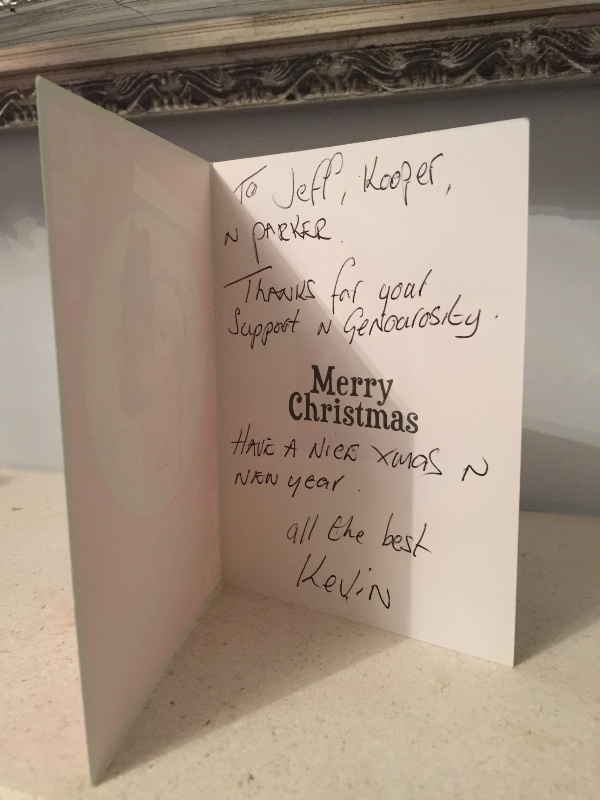 To Jeff, Kooper,
N PARKER.
THANKS for your
Support N Genourosity.
Merry
Christmas
HAVE A NICE XMAS N
NEW year.
all the best
Kevin